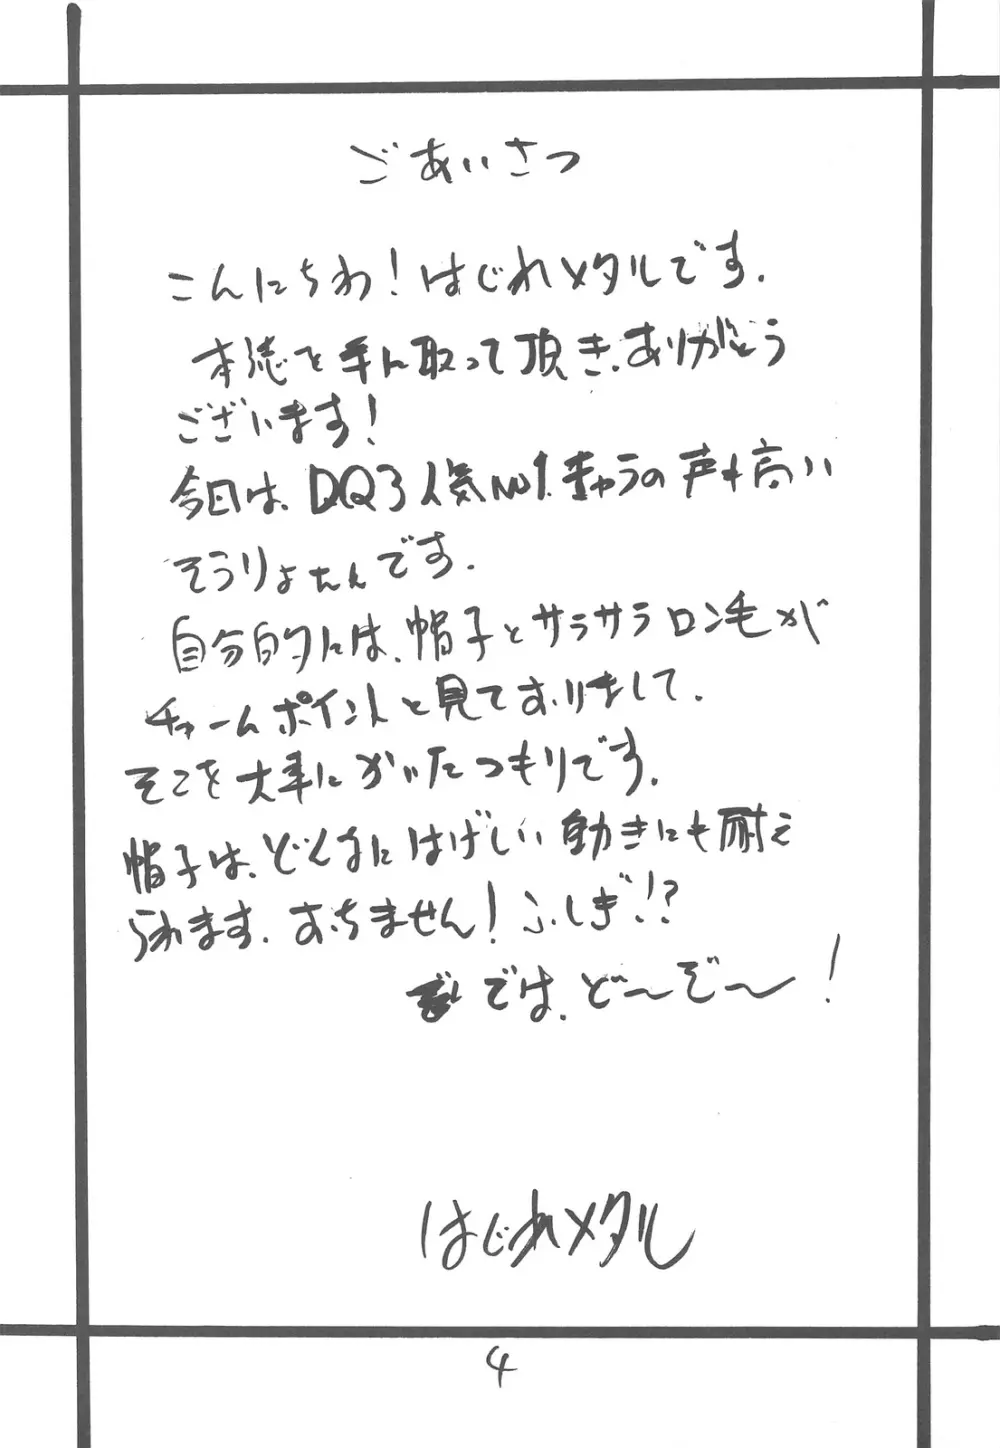 ごあいさつ
こんにちわ！はじれメタルです.
本誌を手に取って頂き、ありがとう
ございます！
今日は、DQ3人気No1.ぎゃうの声も高い
そうりょたんです.
自分的には、帽子とサラサラロン毛が
チャームポイントと見ておりまして.
そこを大事にかいたつもりです.
帽子は、どんなにはげしい動きにも耐え
られます. おちません！ふしぎ!?
では、ど〜ぞ〜！
はじれメタル
4